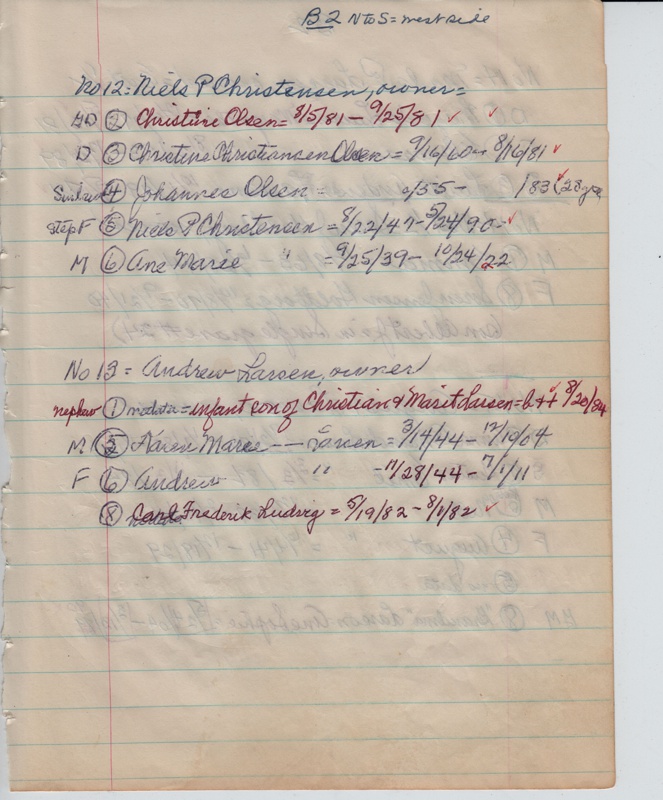 B2 N to S = west side
No 12 = Niels P Christensen, owner =
GD ② Christine Olsen = 8/5/81 - 9/25/81 ✓ ✓
D ③ Christine Christiansen Olsen = 9/16/60 - 8/16/81 ✓
④ Johannes Olsen = 9/55 - /83 (28 yrs
Step F ⑤ Niels P Christensen = 8/22/47 - 5/24/90 = ✓
M ⑥ Ane Marie " = 9/25/39 - 10/24/22
No 13 = Andrew Larsen, owner
nephew ① no data = infant son of Christian & Marit Larsen = b & d 8/20/84 ✓
M ⑤ Karen Marie -- Larsen = 3/14/44 - 12/19/04
F ⑥ Andrew " - 11/28/44 - 7/1/11
⑧ Carl Frederik Ludvig = 5/19/82 - 8/1/82 ✓